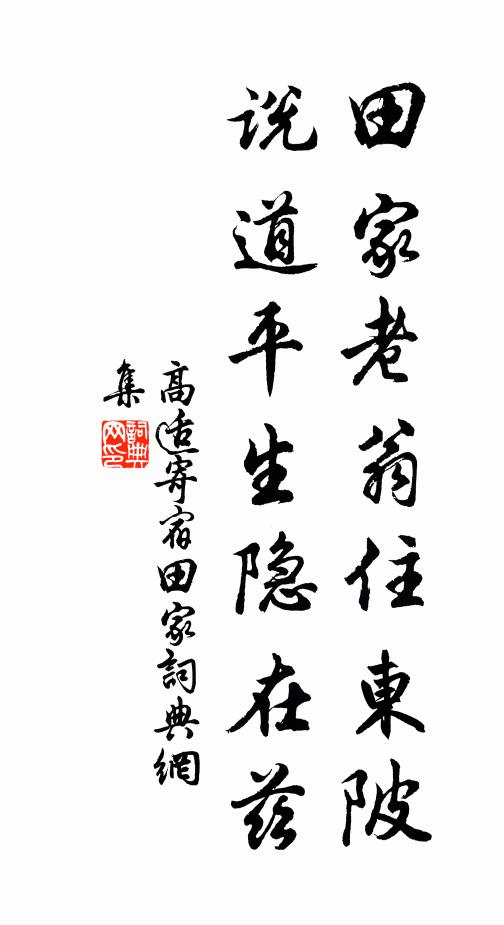 田家老翁住東陂
说道平生隐在兹
高适寄宿田家詞典網
集
詞典
网印